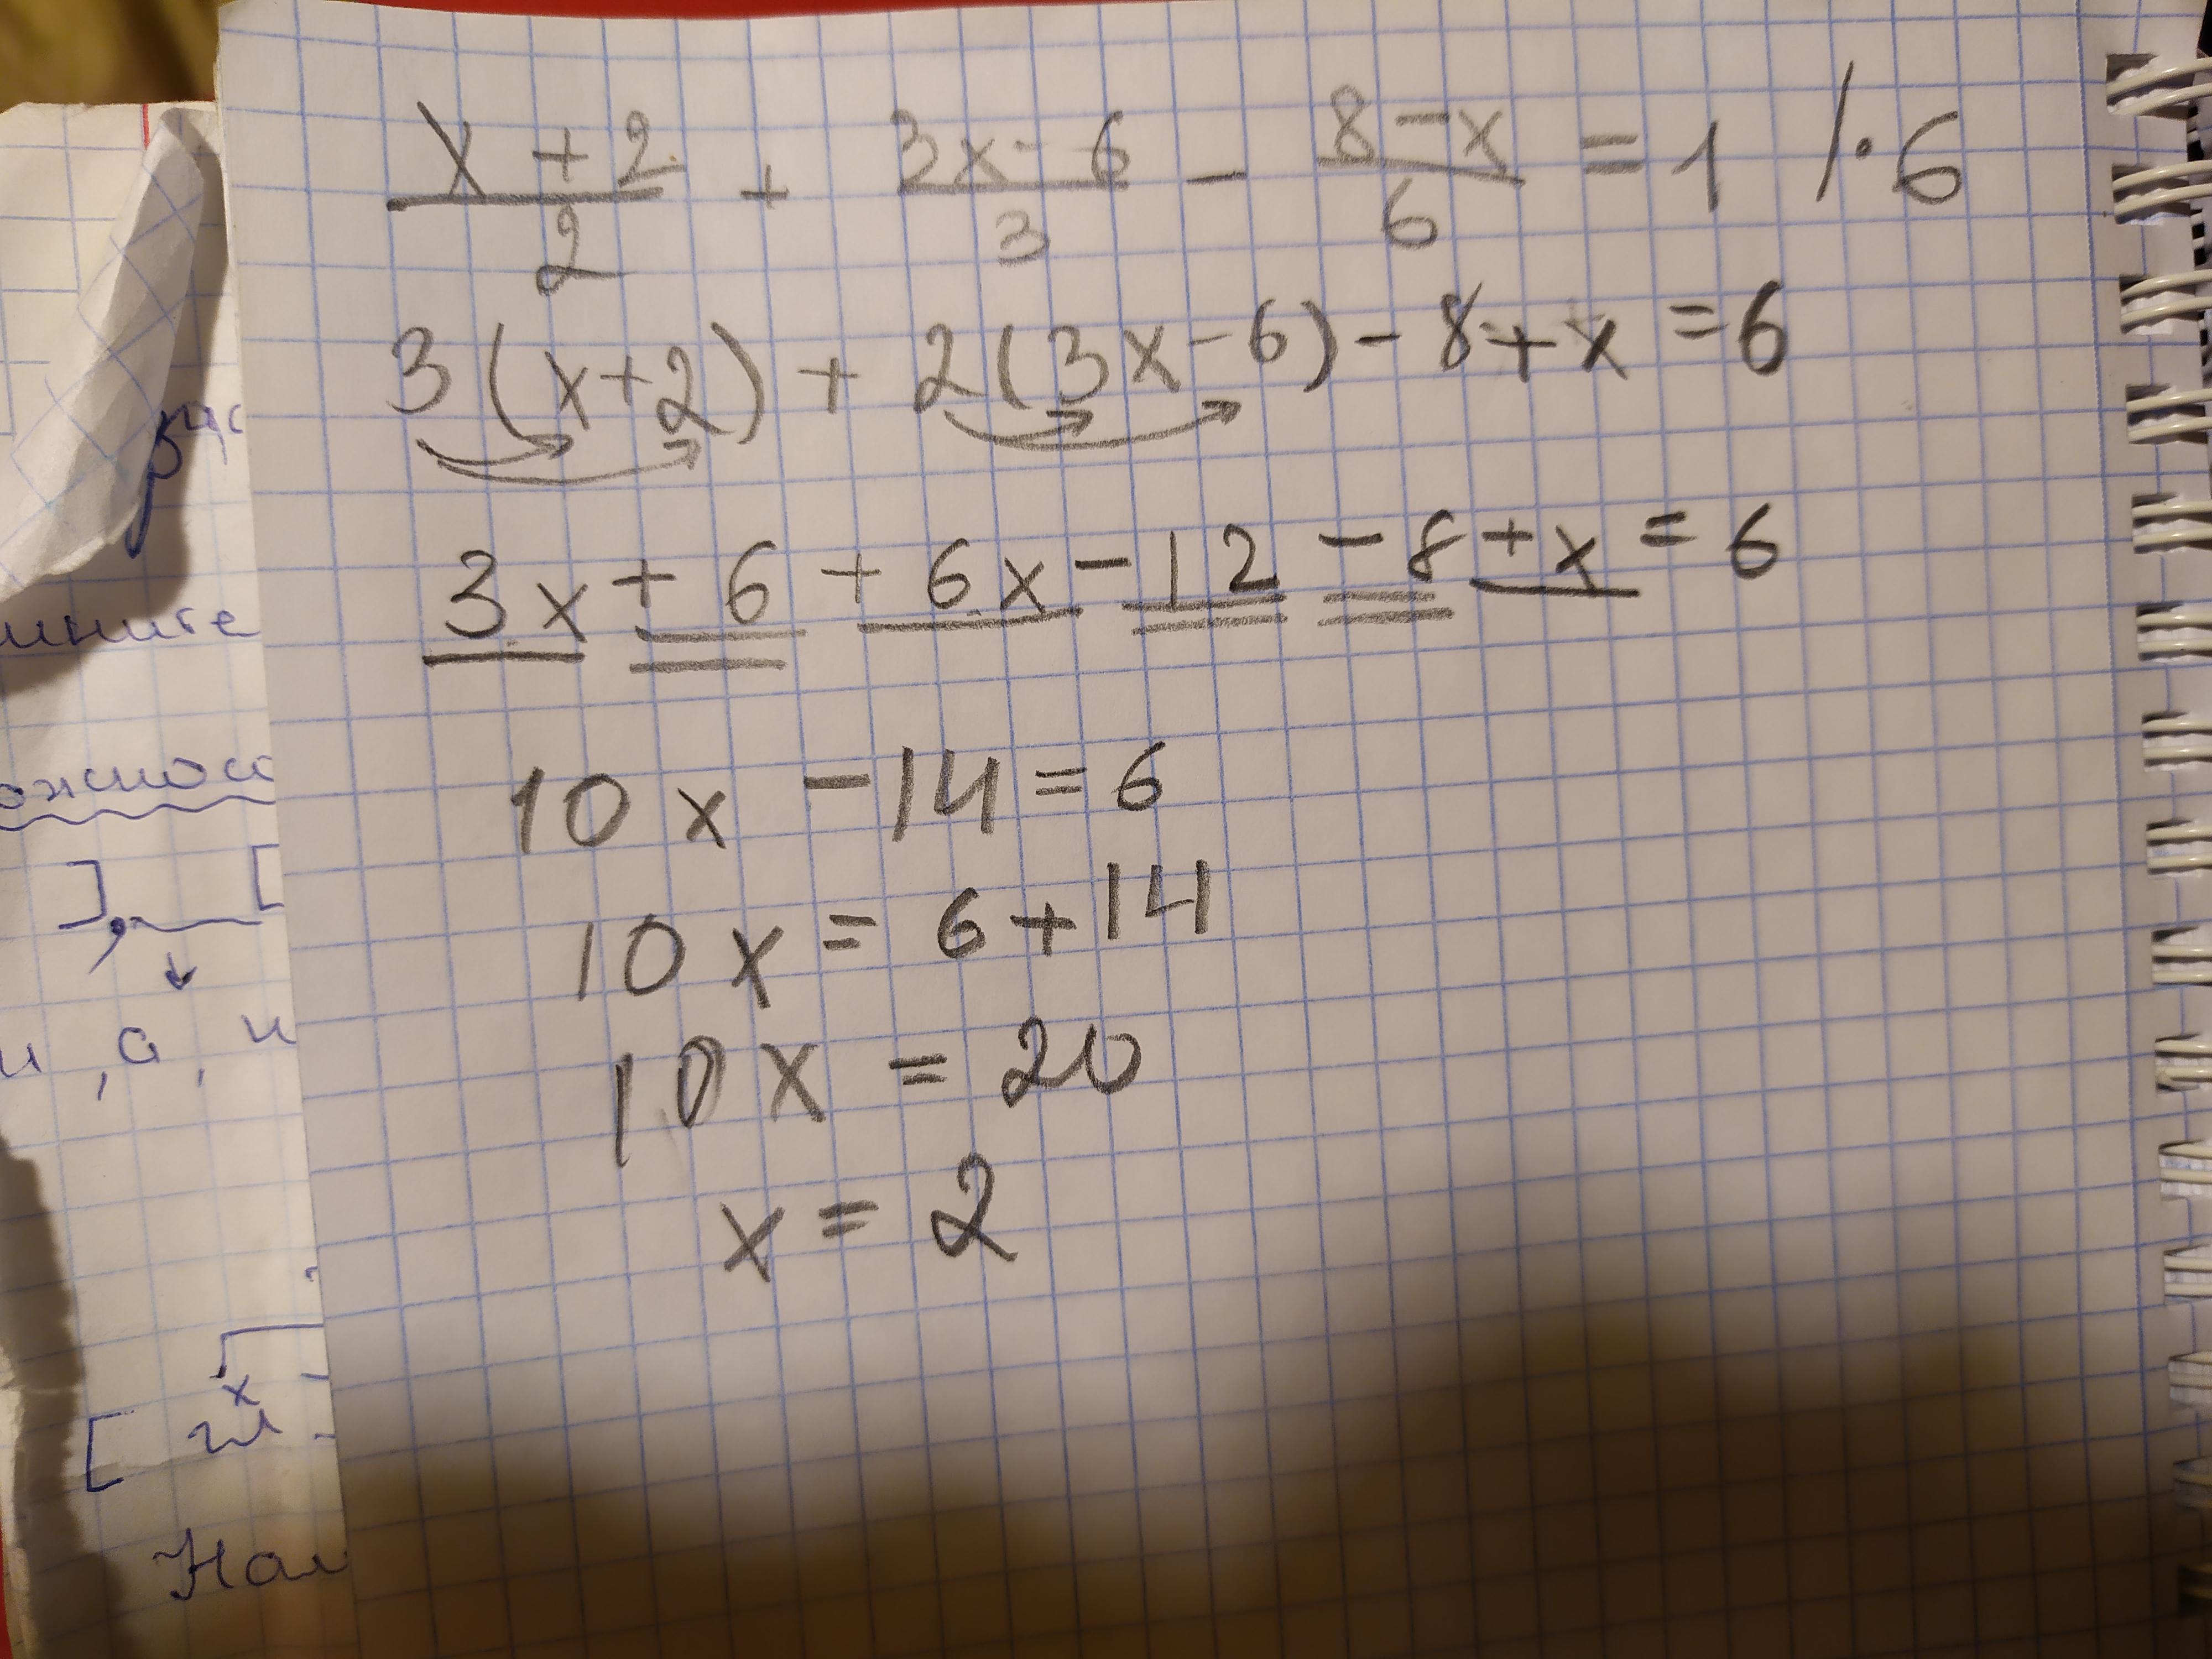 (x + 2)/2 + (3x - 6)/3 - (8 - x)/6 = 1 / · 6
3(x+2) + 2(3x-6) - 8 + x = 6
3x + 6 + 6x - 12 - 8 + x = 6
10x - 14 = 6
10x = 6 + 14
10x = 20
x = 2
ините
], [
и, а, и
x
[